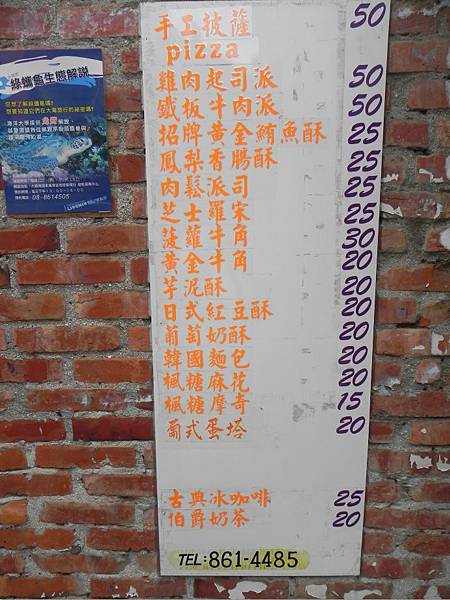 手工披薩 50
pizza
雞肉起司派 50
鐵板牛肉派 50
招牌黃金鮪魚酥 25
鳳梨香腸酥 25
肉鬆派司 25
芝士羅宋 25
菠蘿牛角 30
黃金牛角 20
芋泥酥 20
日式紅豆酥 20
葡萄奶酥 20
韓國麵包 20
楓糖麻花 20
楓糖摩奇 15
葡式蛋塔 20
古典冰咖啡 25
伯爵奶茶 20
TEL:861-4485
綠蠵龜生態解說
您想了解綠蠵龜嗎?
想要知道它們在大海旅行的秘密嗎?
08-8614505